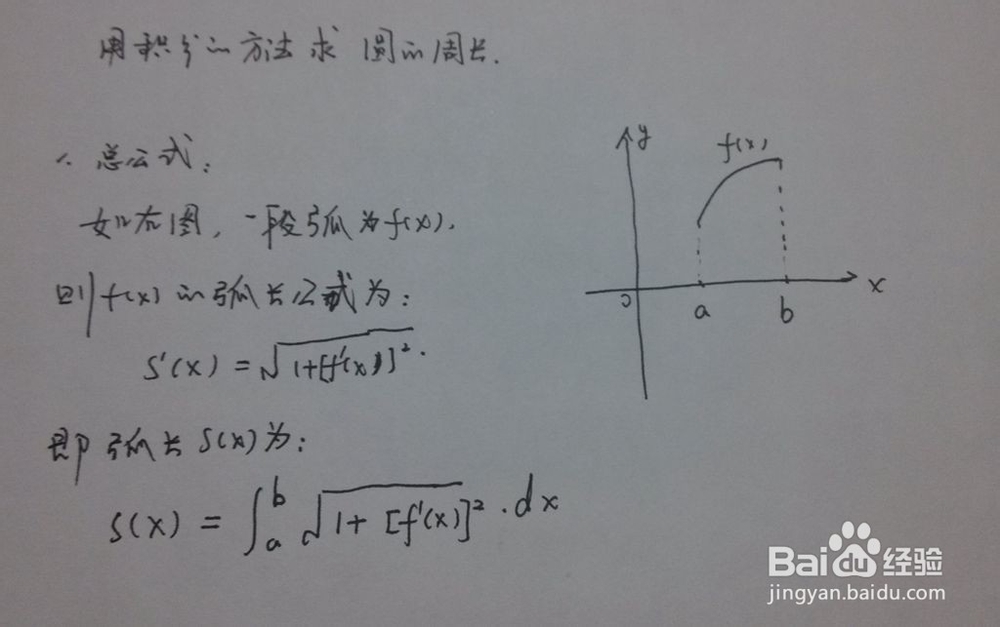 用积分的方法求圆的周长.
1. 总公式:
如右图, 一段弧为f(x).
则f(x)的弧长公式为:
S'(x) = √(1+[f'(x)]²).
即弧长S(x)为:
S(x) = ∫ₐᵇ √(1+[f'(x)]²)·dx
y
f(x)
0
a
b
x
Baidu经验
jingyan.baidu.com